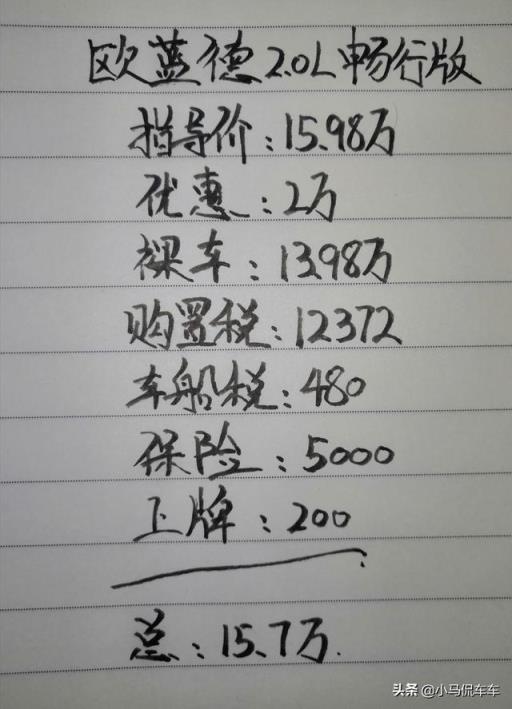 欧蓝德2.0L畅行版
指导价:15.98万
优惠:2万
裸车:13.98万
购置税:12372
车船税:480
保险:5000
上牌:200
总:15.7万
头条 @小马侃车车